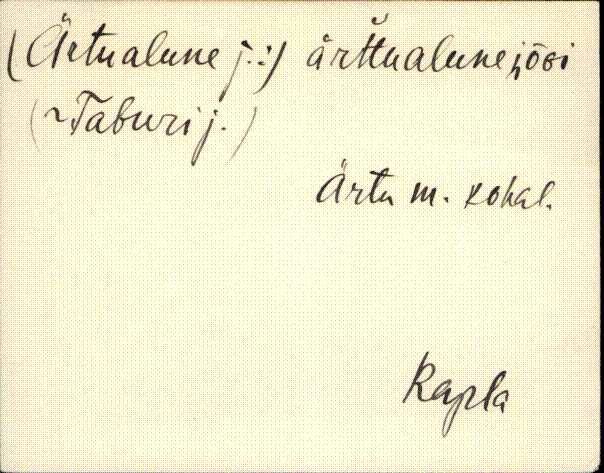 (Ärtualune j.:) ärttualune jõɢi
(~Taburi j.)
Ärtu m. kohal.
Rapla